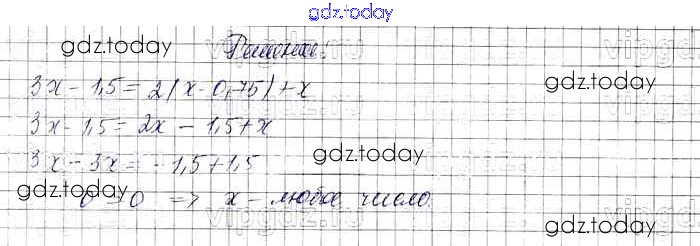 gdz.today
gdz.today
Решение.
vipgdz.ru
3x - 1,5 = 2(x - 0,75) + x
gdz.today
3x - 1,5 = 2x - 1,5 + x
3x - 3x = -1,5 + 1,5
gdz.today
gdz.today
0 = 0 => x - любое число
vipgdz.ru
gdz.today